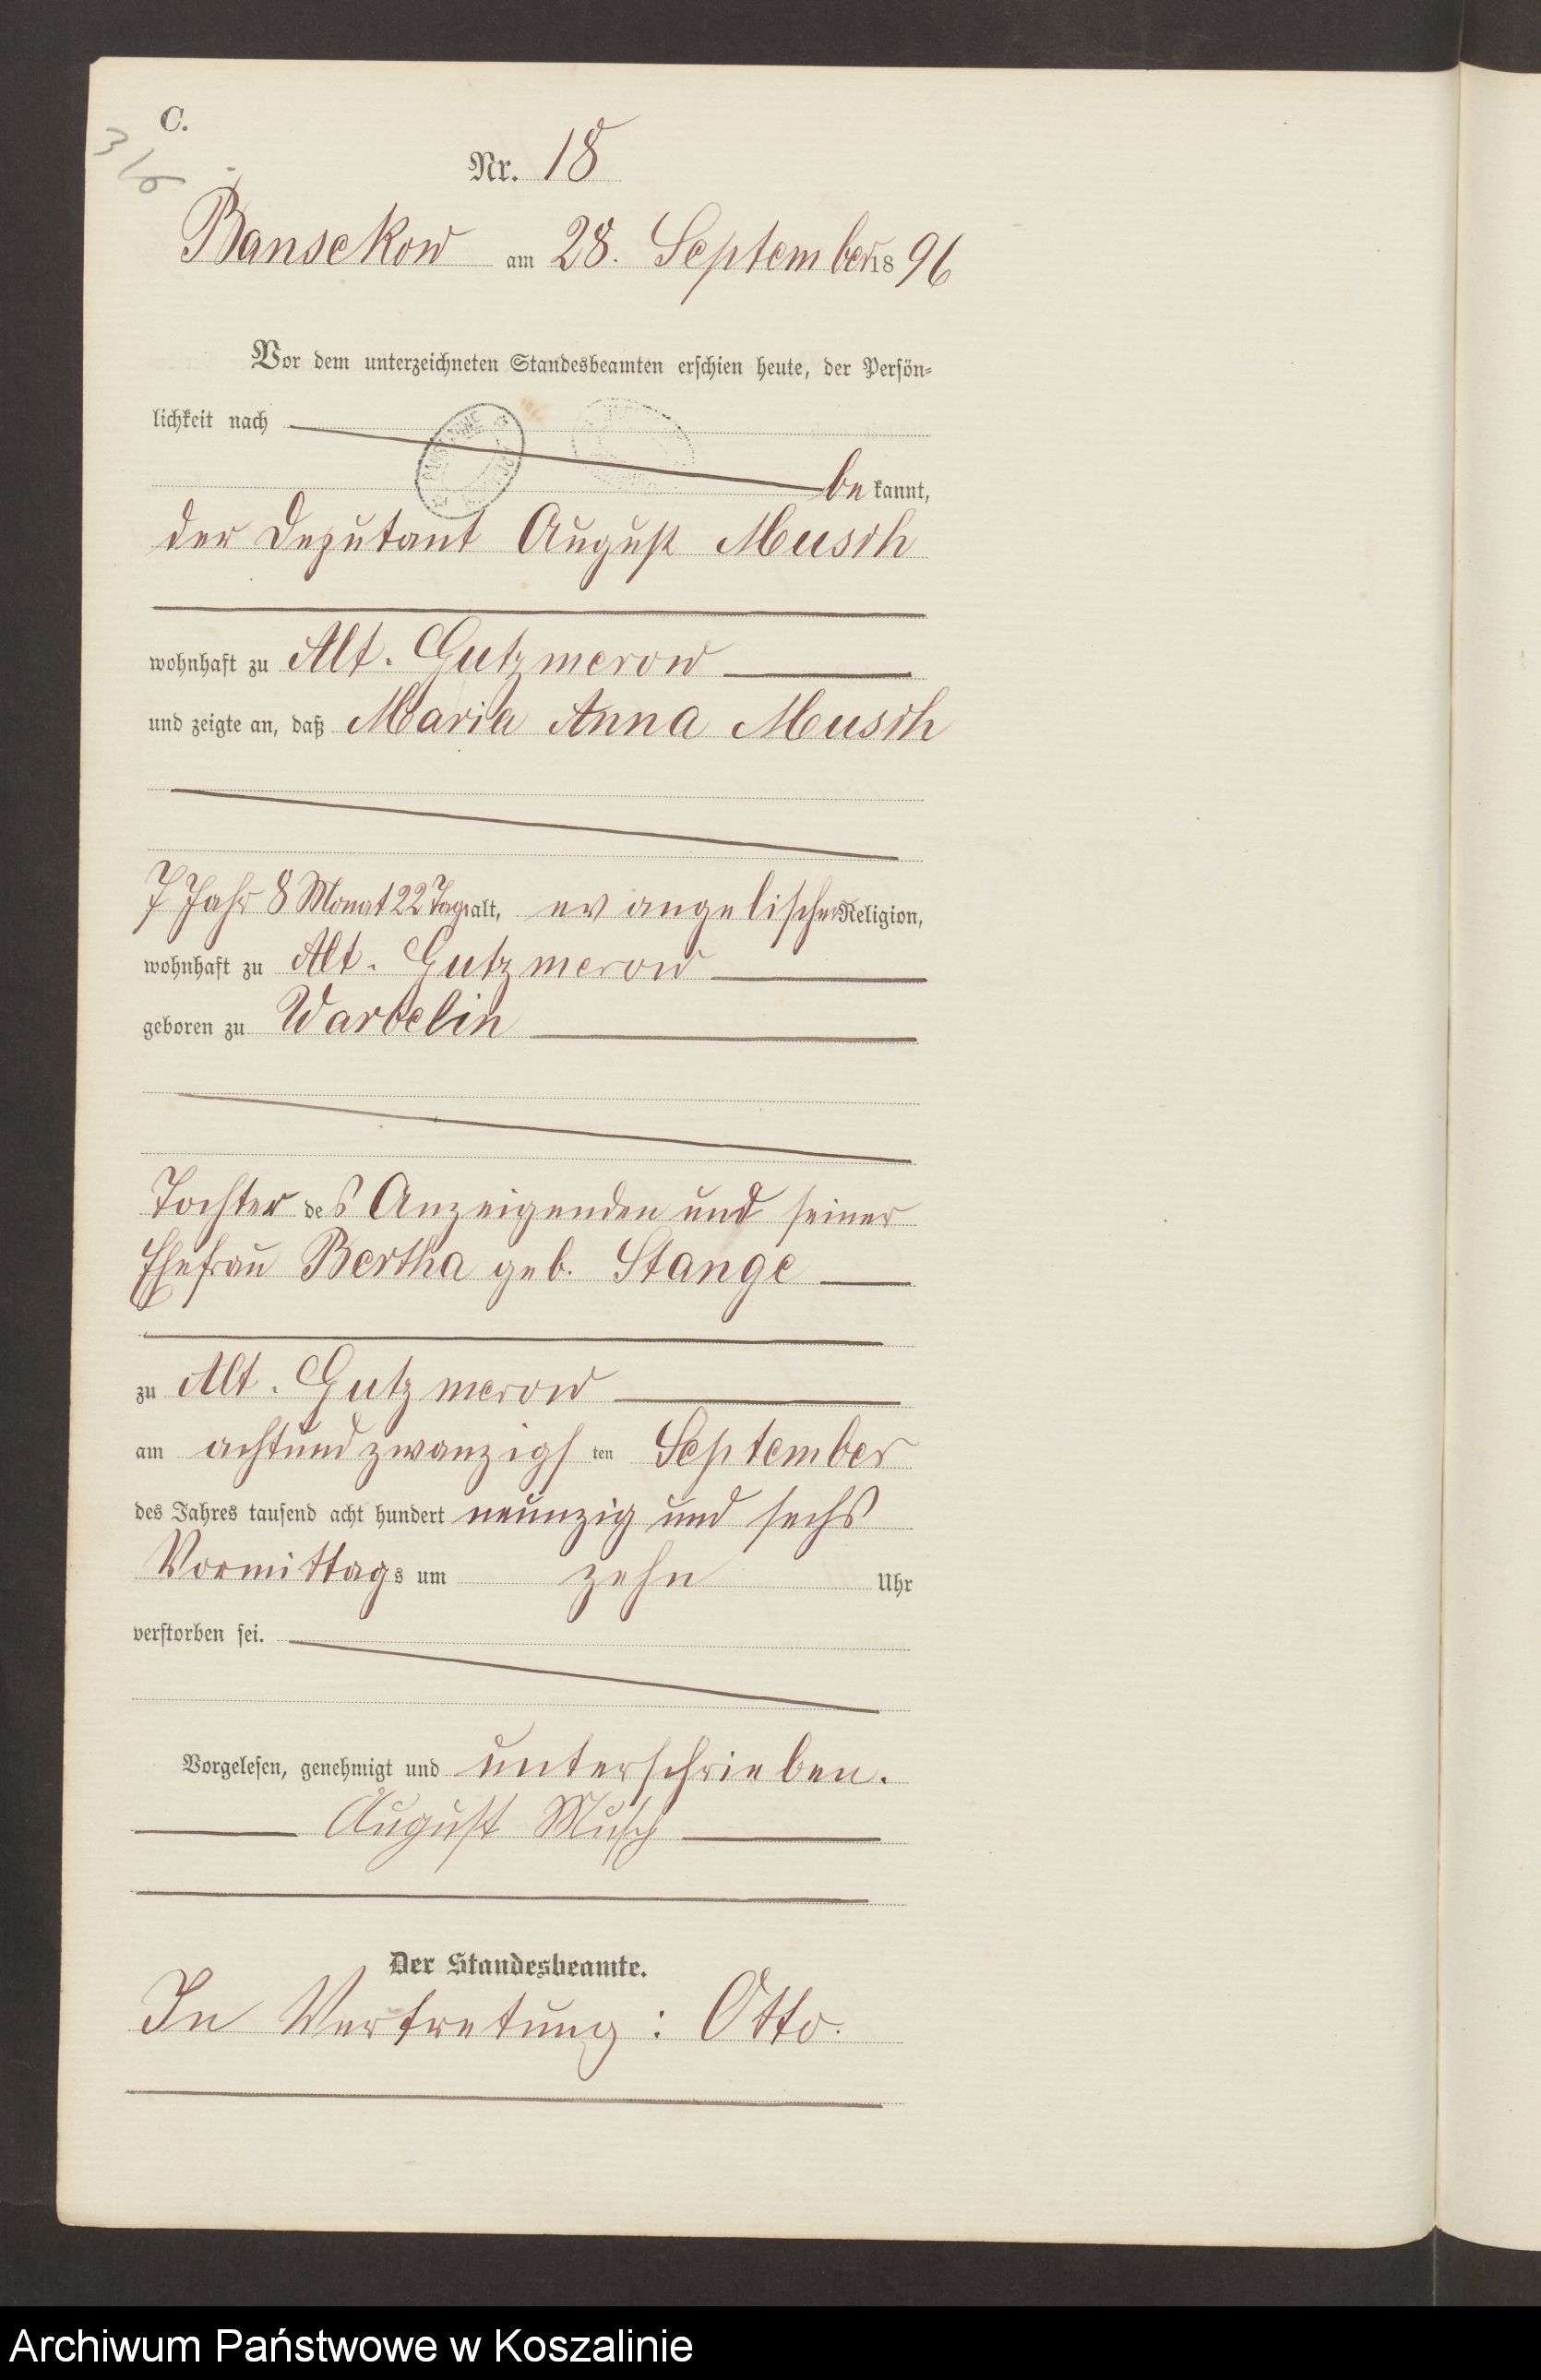 C.
3/6
Nr. 18
Bansekow am 28. September 1896
Vor dem unterzeichneten Standesbeamten erschien heute, der Persön-
lichkeit nach
be kannt,
der Deputant August Musch
wohnhaft zu Alt. Gutzmerow
und zeigte an, daß Maria Anna Musch
7 Jahr 8 Monat 22 Tage alt, evangelischer Religion,
wohnhaft zu Alt. Gutzmerow
geboren zu Warbelin
Tochter des Anzeigenden und seiner
Ehefrau Bertha geb. Stange
zu Alt. Gutzmerow
am achtundzwanzigsten September
des Jahres tausend acht hundert neunzig und sechs
Vormittags um zehn Uhr
verstorben sei.
Vorgelesen, genehmigt und unterschrieben.
August Musch
Der Standesbeamte.
In Vertretung: Otto.
Archiwum Państwowe w Koszalinie